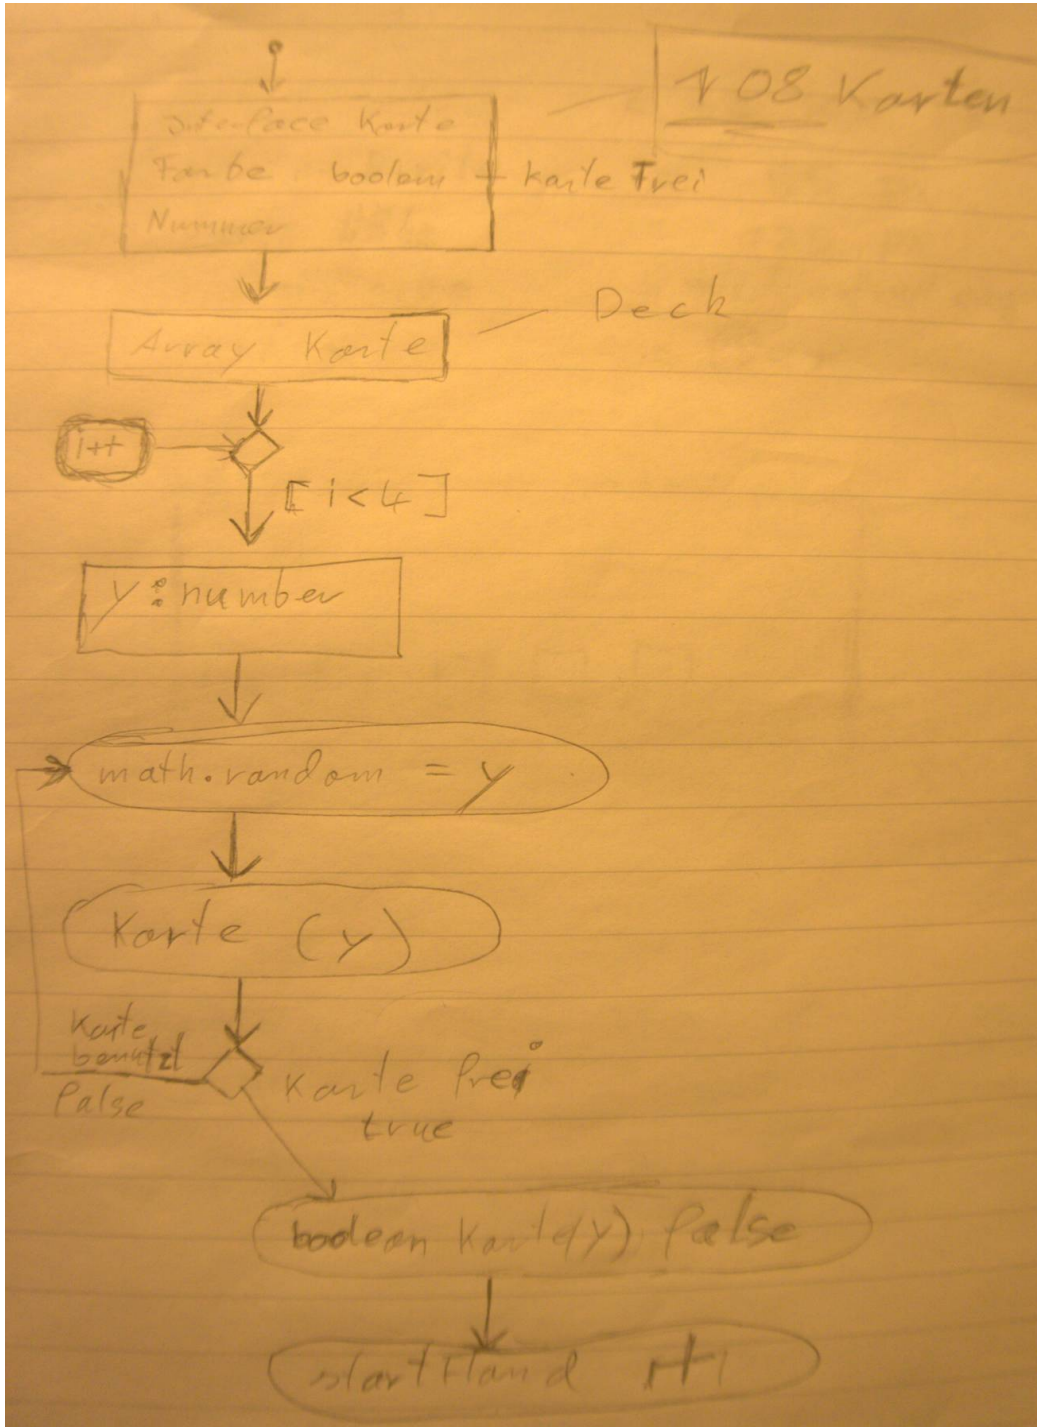 108 Karten
Interface Karte
Farbe boolean + karte Frei
Nummer
Array Karte
Deck
i++
[i<4]
y : number
math.random = y
Karte (y)
Karte
benutzt
false
Karte frei
true
boolean Karte(y) false
startHand